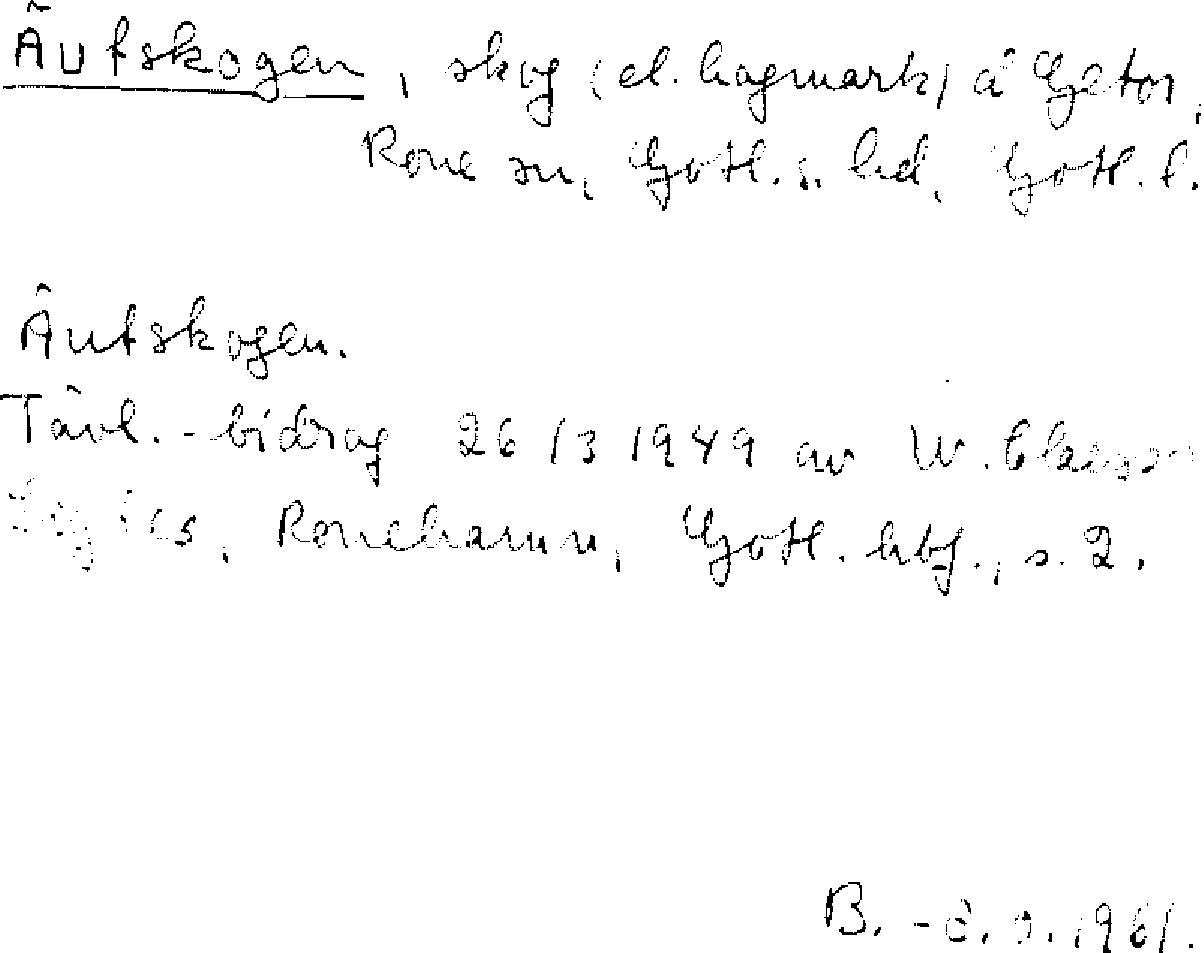 Äutskogen, skog (el. hagmark) å Getor,
Rone sn, Gotl. s. hd, Gotl. l.
Äutskogen.
Tävl.-bidrag 26/3 1949 av W. Claesson
Ronehamn, Gotl. hbf., s. 2.
B. 1961.